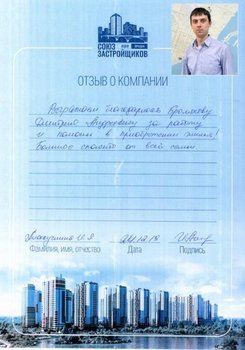 СОЮЗ
ЗАСТРОЙЩИКОВ
ОТЗЫВ О КОМПАНИИ
Выражаем благодарность
Дмитрию Андреевичу за работу
и помощь в приобретении жилья
Большое спасибо от всей семьи
Фамилия, имя, отчество Дата Подпись